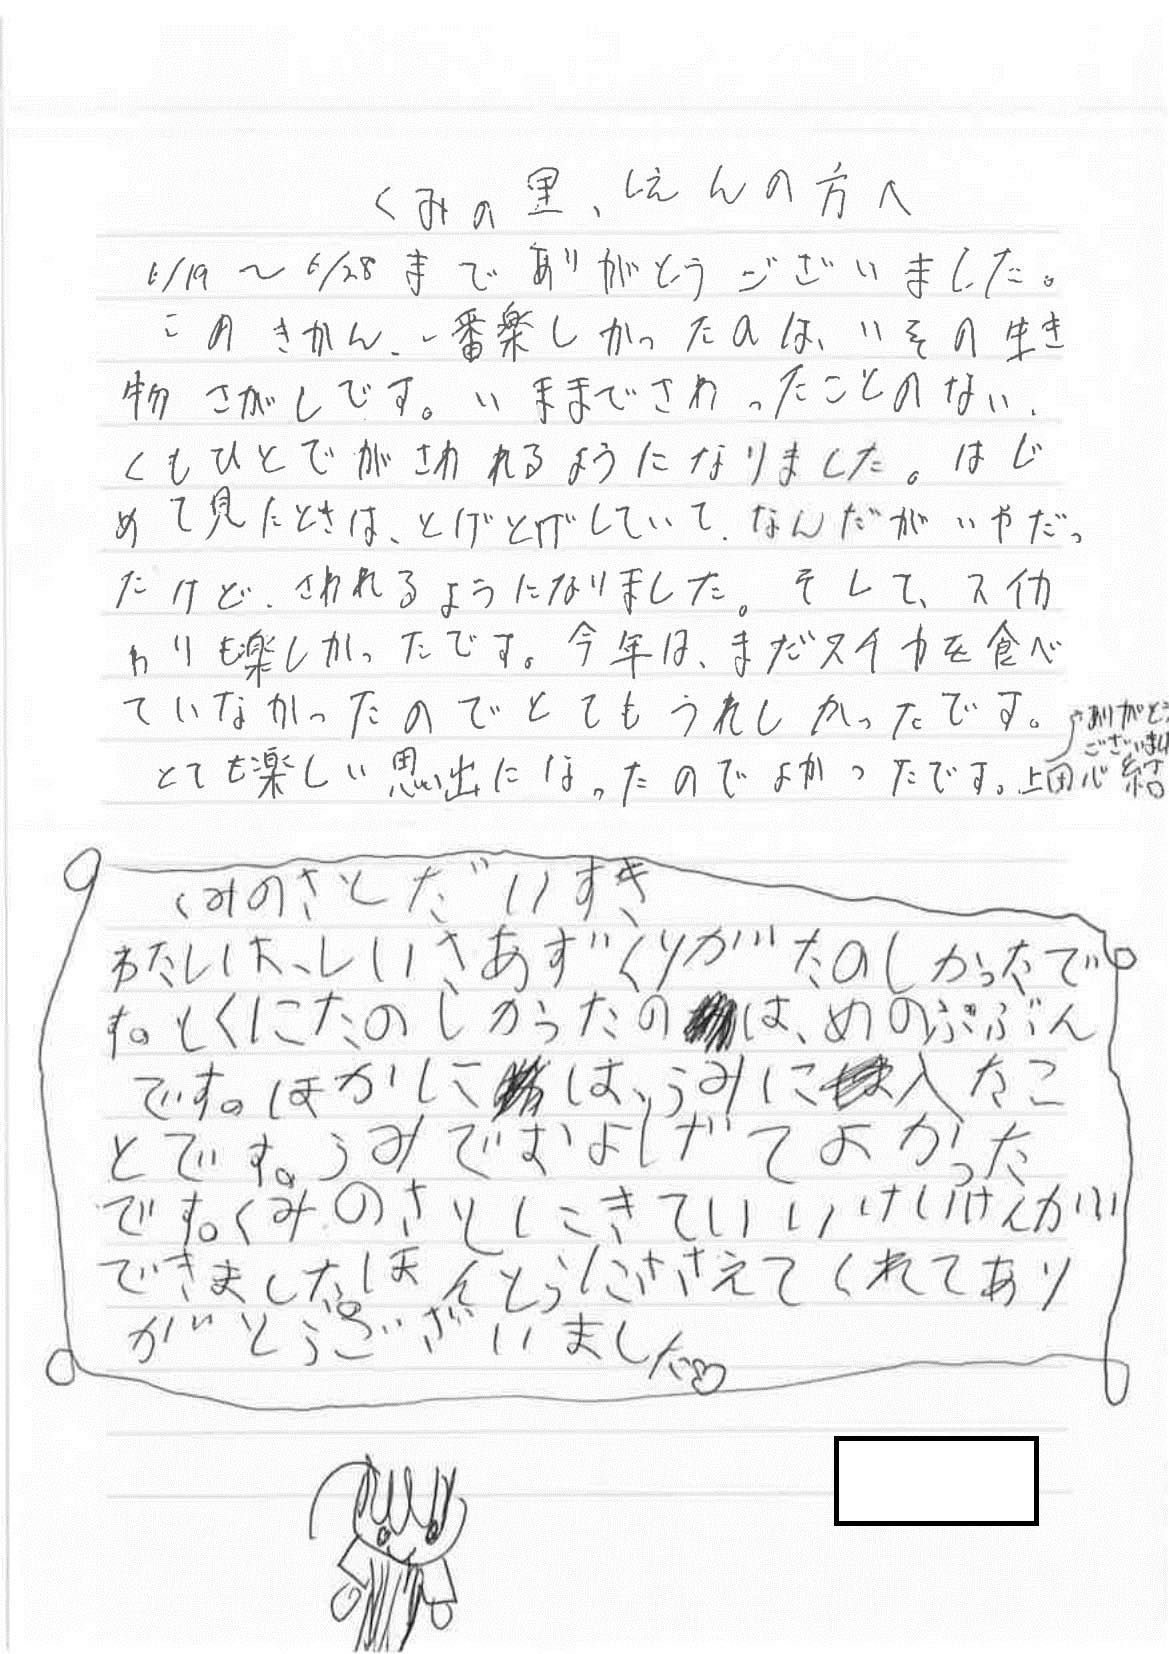 くみの里、しえんの方へ
6/19〜6/28までありがとうございました。
このきかん、一番楽しかったのは、いその生き
物さがしです。いままでさわったことのない、
くもひとでがさわれるようになりました。はじ
めて見たときは、とげとげしていて、なんだがいやだっ
たけど、さわれるようになりました。そして、スイカ
わりも楽しかったです。今年は、まだスイカを食べ
ていなかったのでとてもうれしかったです。
とても楽しい思い出になったのでよかったです。上田心結
ありがとう
ございました
くみのさとだいすき
わたしは、しいさあずくりがたのしかったで
す。とくにたのしかったのは、めのぶぶん
です。ほかには、うみに入たこ
とです。うみでおよしげてよかった
です。くみのさとにきていいけいけんが
できました。ほんとうにささえてくれてあり
がとうございました